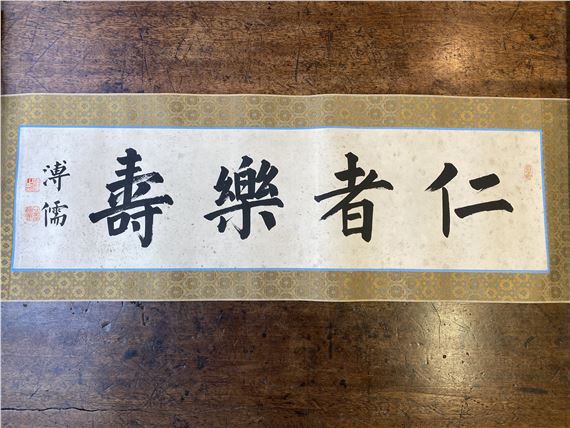 仁者樂壽
溥儒